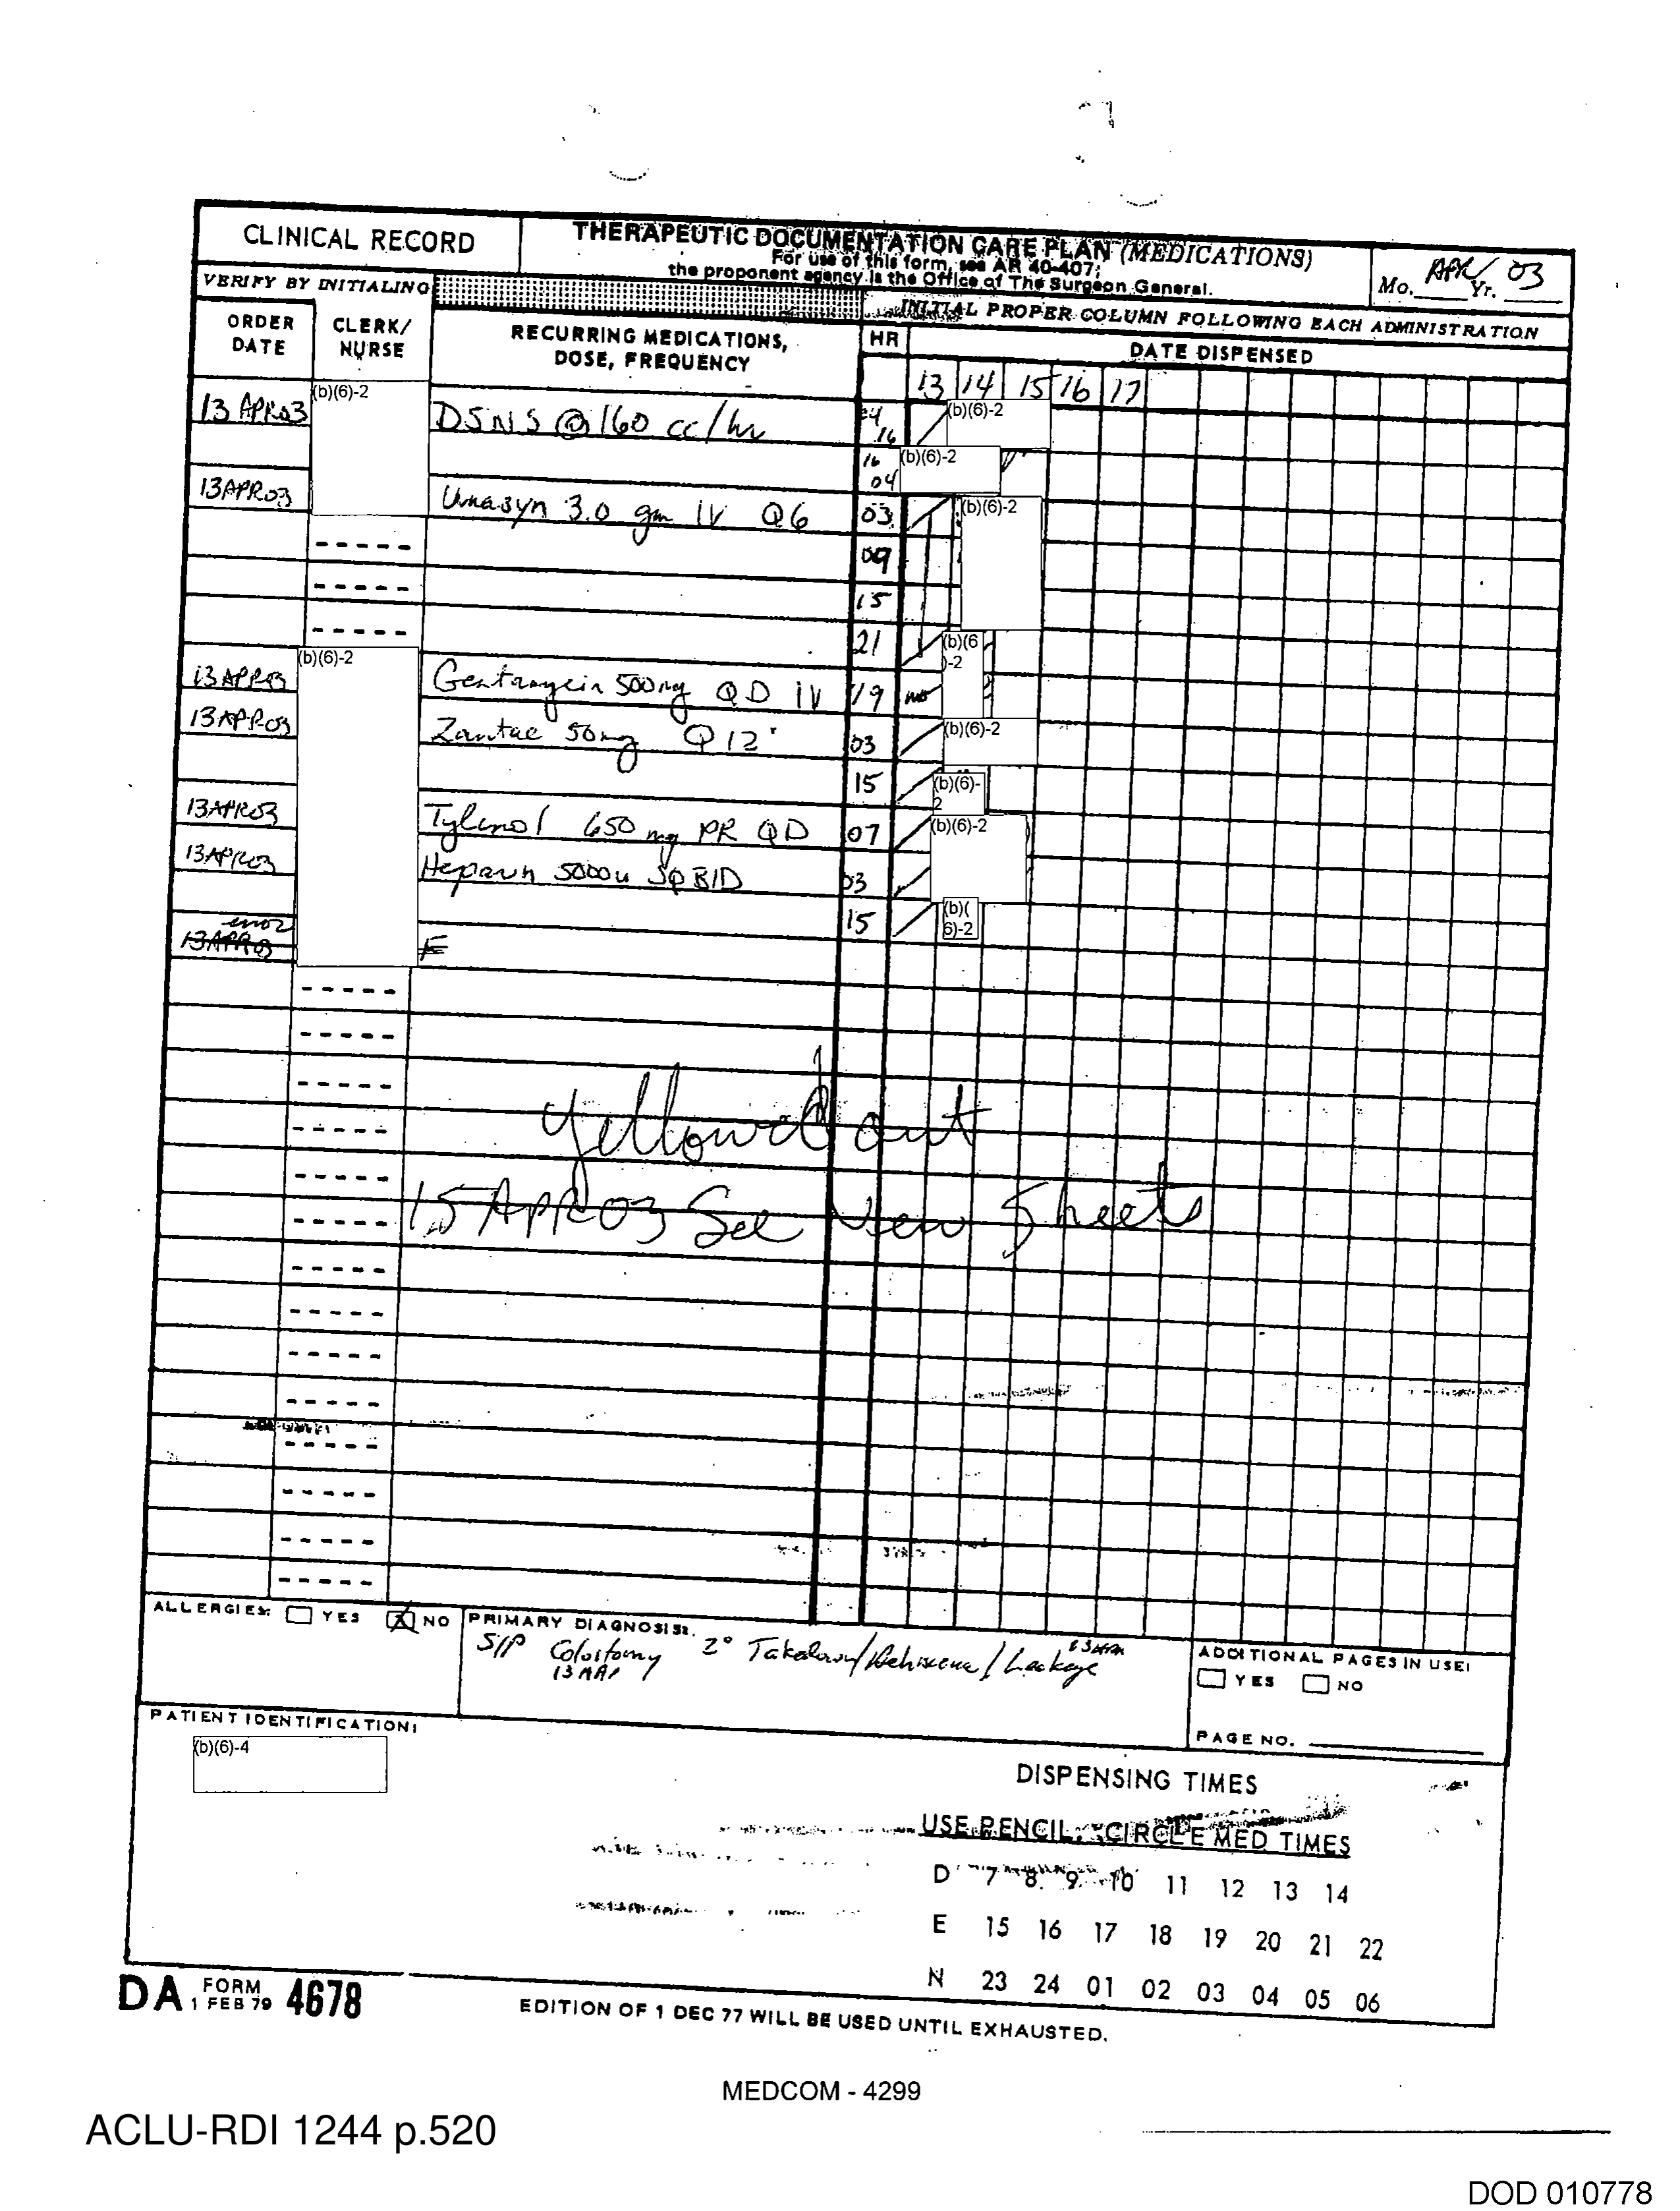 CLINICAL RECORD
THERAPEUTIC DOCUMENTATION CARE PLAN (MEDICATIONS)
For use of this form, see AR 40-407;
the proponent agency is the Office of The Surgeon General.
Mo. APR Yr. 03
VERIFY BY INITIALING
INITIAL PROPER COLUMN FOLLOWING EACH ADMINISTRATION
ORDER DATE
CLERK/ NURSE
RECURRING MEDICATIONS, DOSE, FREQUENCY
HR
DATE DISPENSED
13 14 15 16 17
13 APR03 (b)(6)-2 D5NS @ 160 cc/hr 04 16 (b)(6)-2
16 04 (b)(6)-2
13APR03 Unasyn 3.0 gm IV Q6 03 (b)(6)-2
09
15
21 (b)(6)-2
13APR03 (b)(6)-2 Gentamycin 500mg QD IV 19
13APR03 Zantac 50mg Q12° 03 (b)(6)-2
15 (b)(6)-2
13APR03 Tylenol 650 mg PR QD 07 (b)(6)-2
13APR03 Heparin 5000u SQ BID 03
15 (b)(6)-2
error
13APR03
Yellowed out
15 APR 03 See New Sheets
ALLERGIES: YES X NO
PRIMARY DIAGNOSIS:
S/P Colostomy 2° Takedown/Dehiscence/Leakage
ADDITIONAL PAGES IN USE:
YES NO
PAGE NO.
PATIENT IDENTIFICATION:
(b)(6)-4
DISPENSING TIMES
USE PENCIL, CIRCLE MED TIMES
D 7 8 9 10 11 12 13 14
E 15 16 17 18 19 20 21 22
N 23 24 01 02 03 04 05 06
DA FORM 4678
1 FEB 79
EDITION OF 1 DEC 77 WILL BE USED UNTIL EXHAUSTED.
MEDCOM - 4299
ACLU-RDI 1244 p.520
DOD 010778